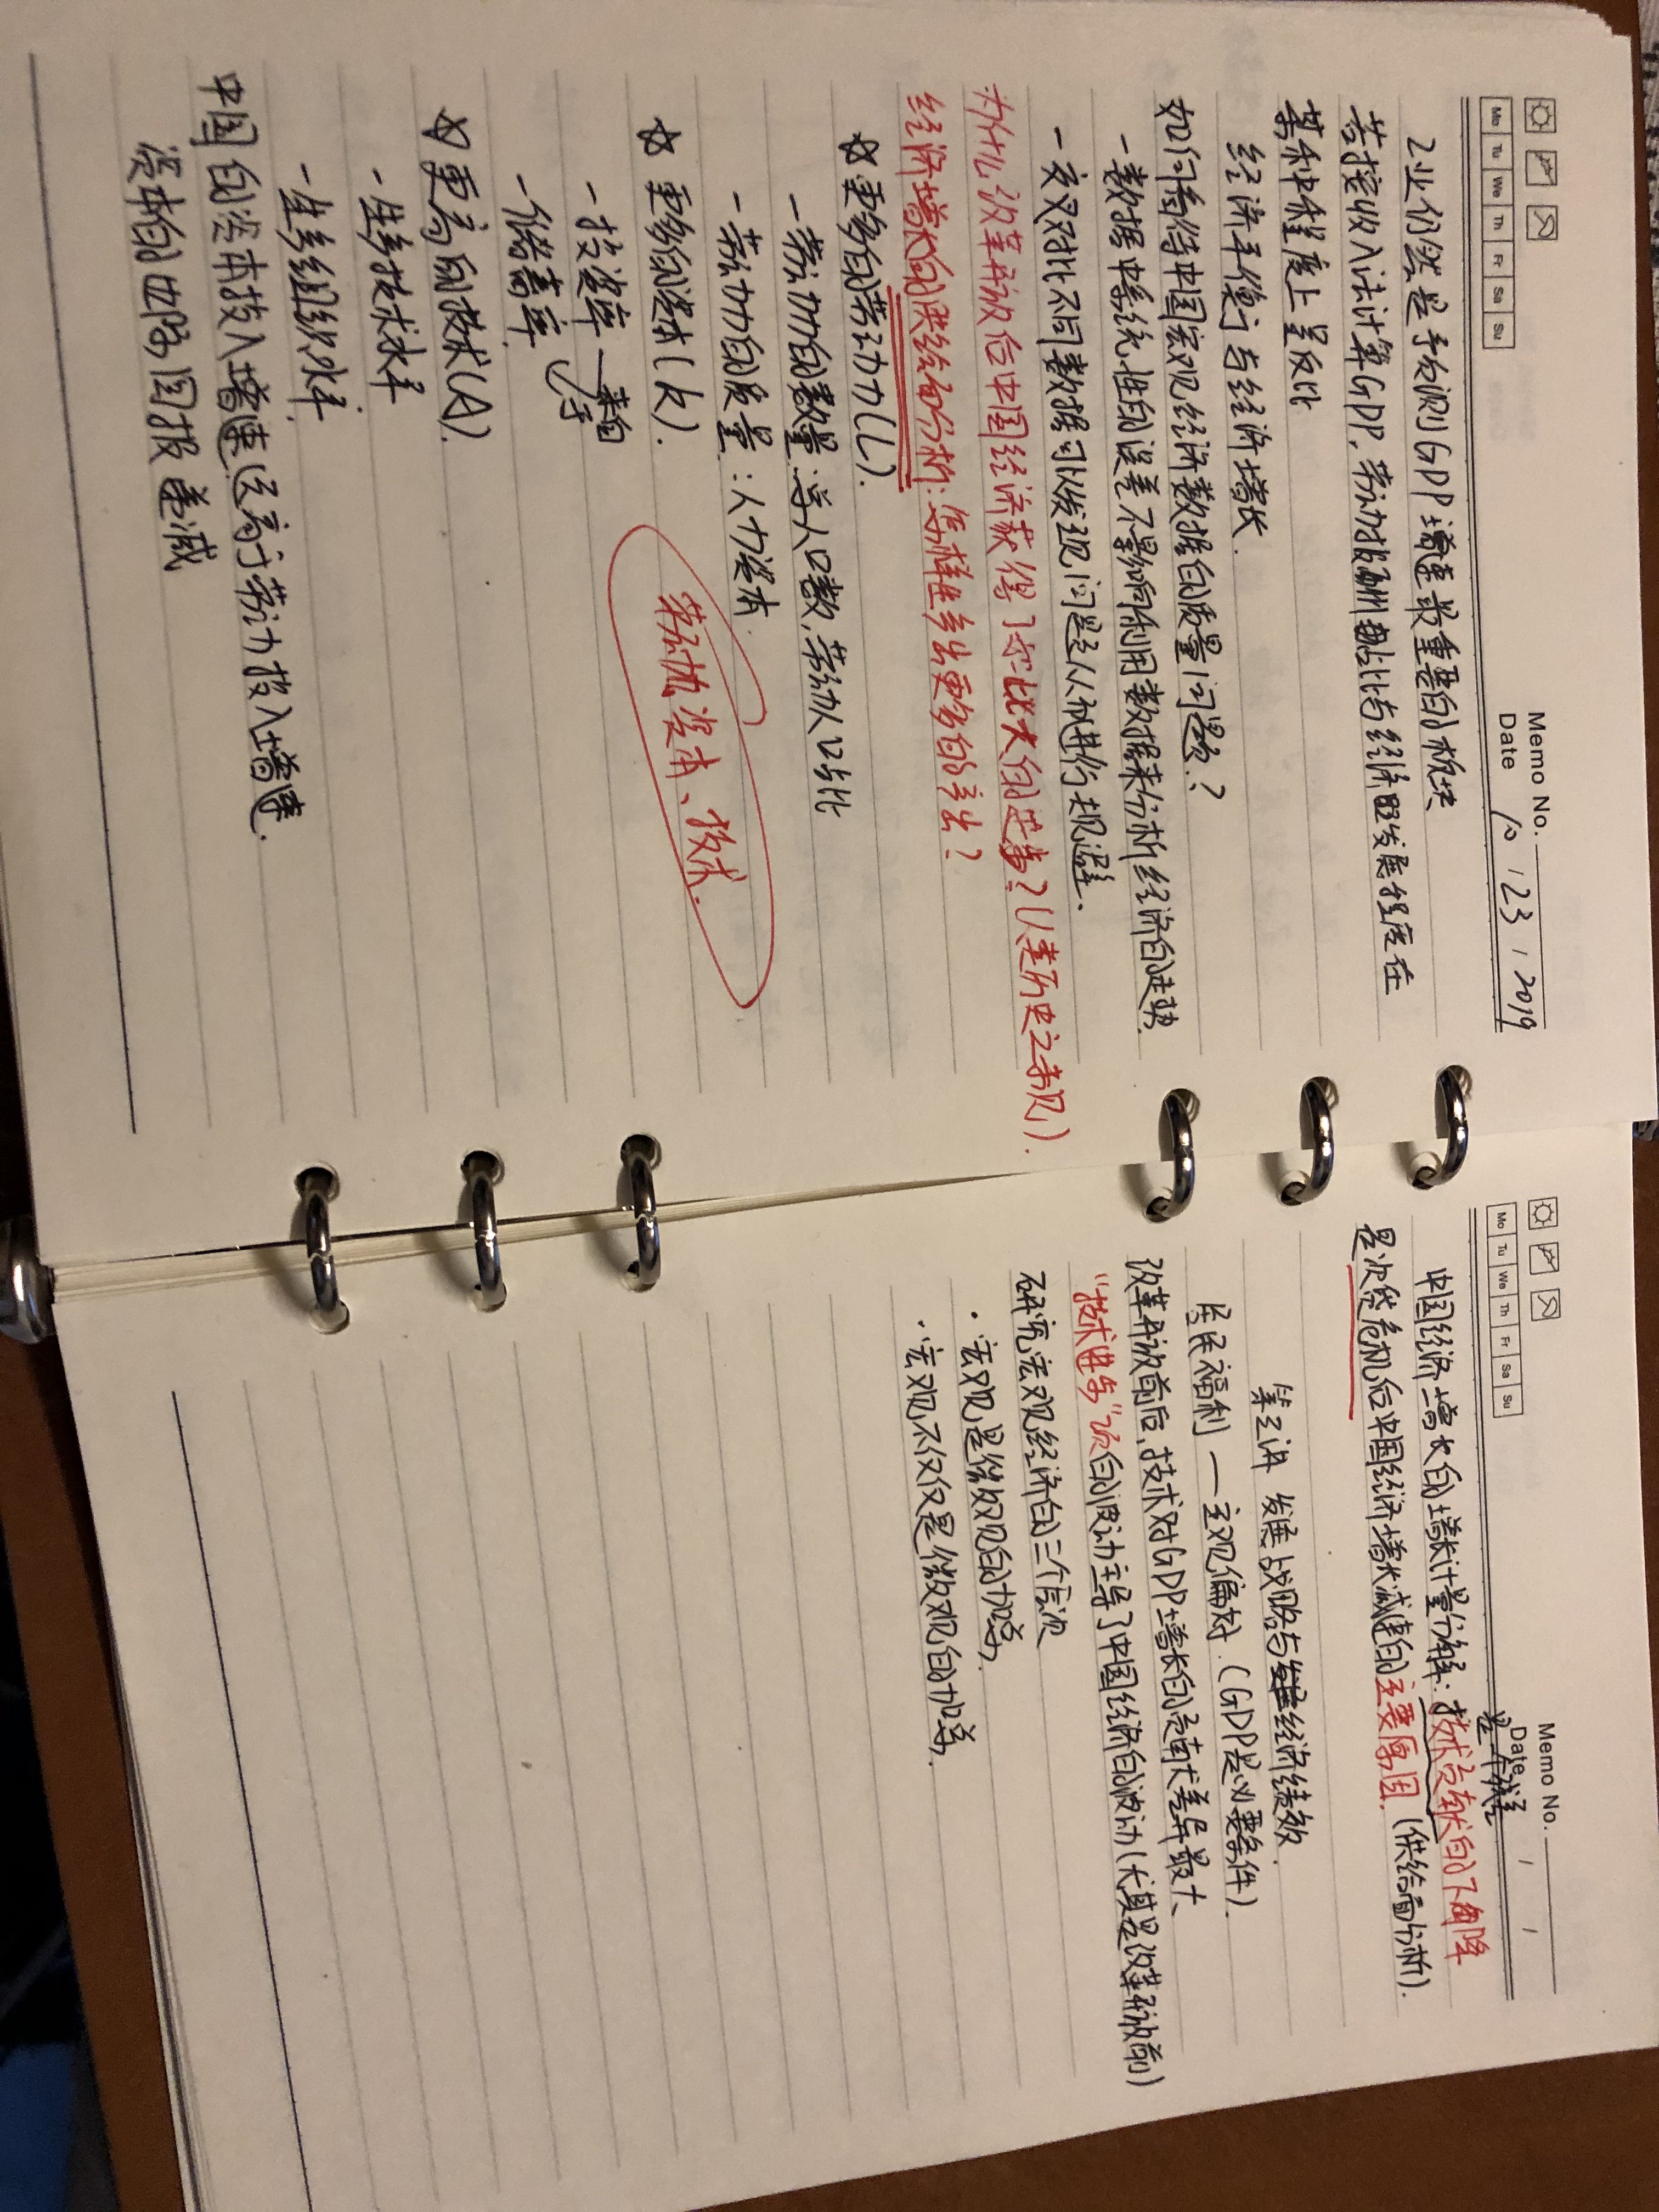 Memo No.
Mo Tu We Th Fr Sa Su
Date 10 / 23 / 2019
工业仍然是手预测GDP增速最重要的板块
若按收入法计算GDP,劳动报酬占比与经济发展程度在
某种程度上呈反比
经济平衡与经济增长.
如何看待中国宏观经济数据的质量问题?
- 数据中系统性的误差不影响利用数据来分析经济的走势.
- 交叉对比不同数据可以发现问题从而进行规避.
为什么改革开放后中国经济获得了如此大的进步?(人类历史之未见).
经济增长的供给面分析:怎样生产出更多的产出?
☆更多的劳动力(L).
- 劳动力的数量:总人口数,劳动人口占比
- 劳动力的质量:人力资本.
☆ 更多的资本(K).
劳动力、资本、技术.
- 投资率
- 储蓄率
☆更高的技术(A).
- 生产技术水平
- 生产组织水平.
中国的资本投入增速远高于劳动力投入增速.
资本的边际回报递减
Memo No.
Mo Tu We Th Fr Sa Su
Date / /
是一个残差
中国经济增长的增长计量分解:技术贡献的下降
是次贷危机后中国经济增长减速的主要原因.(供给面分析).
第三讲 发展战略与经济绩效.
居民福利 — 主观偏好.(GDP是必要条件).
改革开放前后,技术对GDP增长的贡献差异最大
"技术进步"项的波动主导了中国经济的波动(尤其是改革开放前)
研究宏观经济的三个层次
· 宏观是微观的加总.
· 宏观不仅仅是微观的加总.